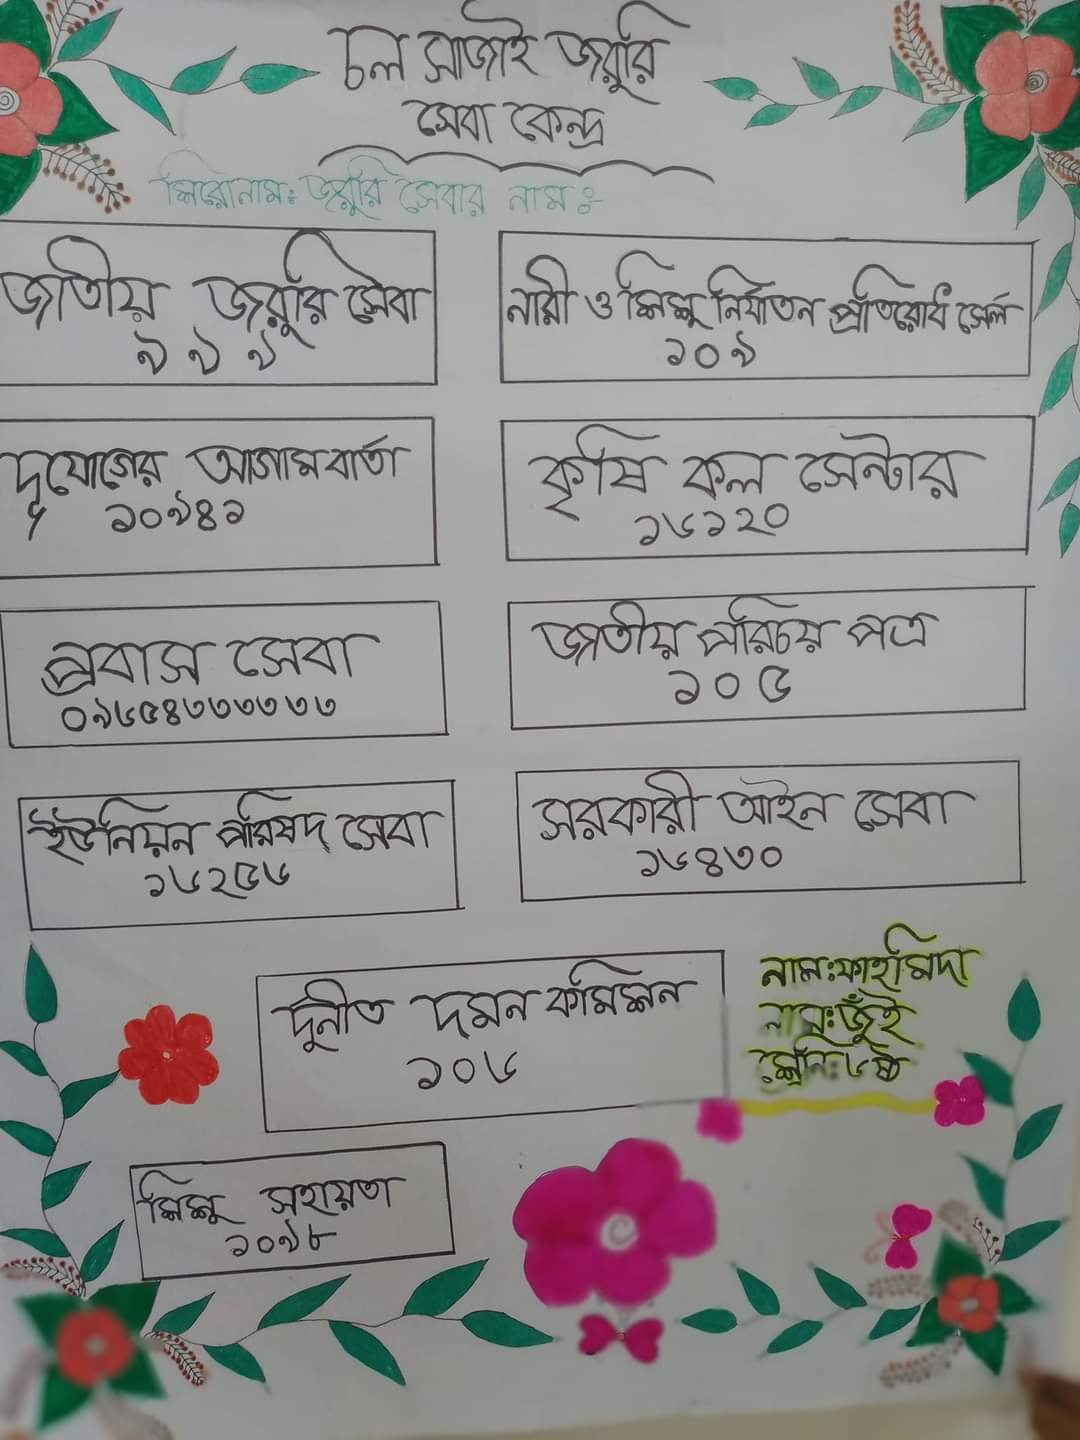 চল সাজাই জরুরি
সেবা কেন্দ্র
শিরোনাম: জরুরি সেবার নাম :-
জাতীয় জরুরি সেবা
৯৯৯
নারী ও শিশু নির্যাতন প্রতিরোধ সেল
১০৯
দূযোগের আগামবার্তা
১০৯৪১
কৃষি কল সেন্টার
১৬১২০
প্রবাস সেবা
০৯৬৫৪৩৩৩৩৩৩
জাতীয় পরিচয় পত্র
১০৫
ইউনিয়ন পরিষদ সেবা
১৬২৫৬
সরকারী আইন সেবা
১৬৪৩০
দুর্নীত দমন কমিশন
১০৬
নাম:ফাহমিদা
নাম:জুঁই
শ্রেণি:৬ষ্ঠ
শিশু সহায়তা
১০৯৮